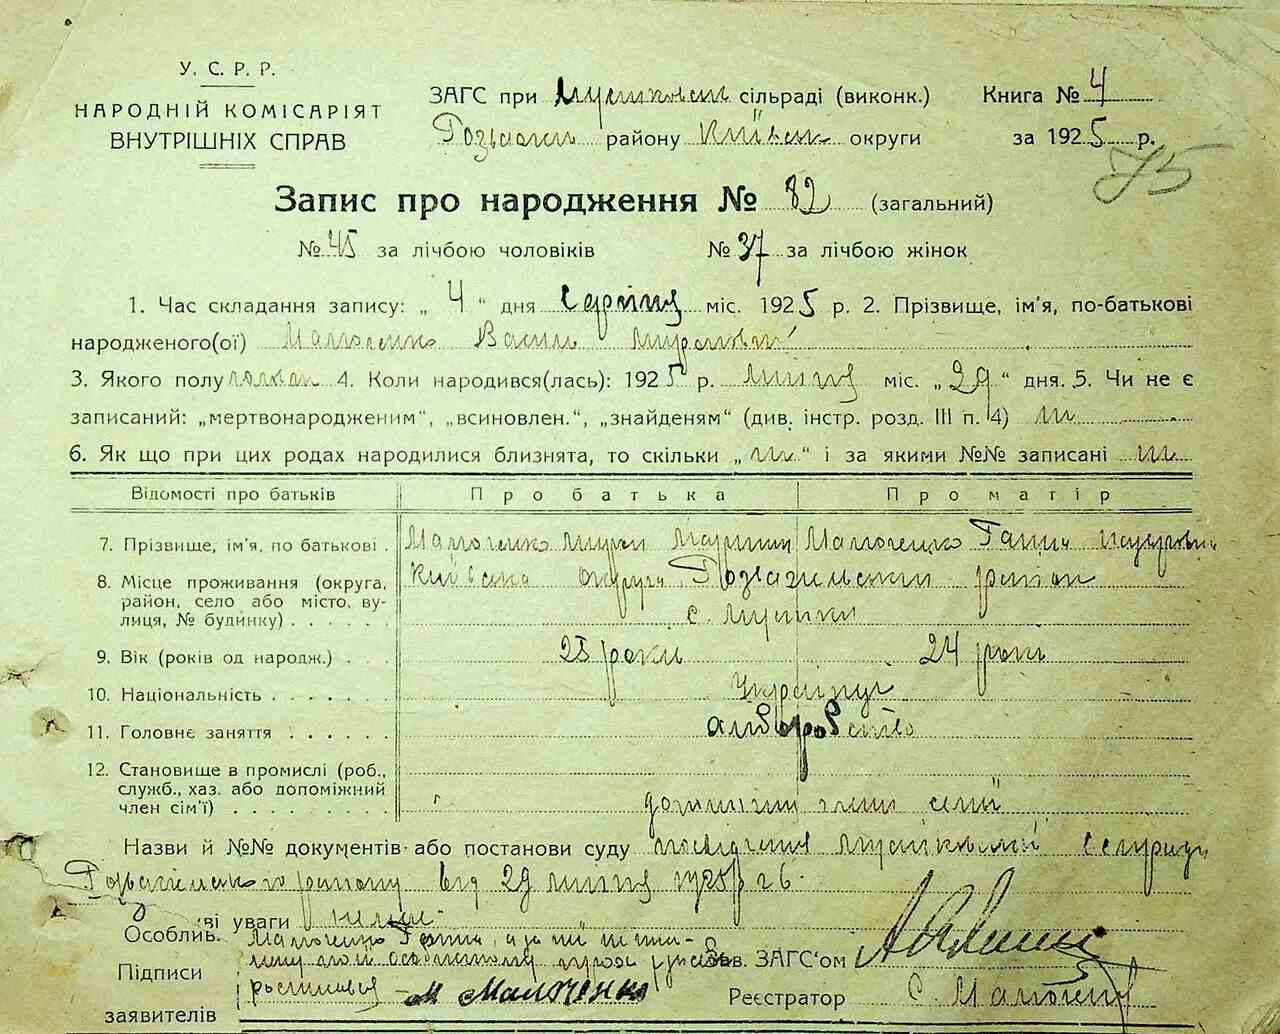 У. С. Р. Р.
НАРОДНІЙ КОМІСАРІЯТ
ВНУТРІШНІХ СПРАВ
ЗАГС при сільраді (виконк.)
району Київськ округи
Книга № 4
за 1925 р.
75
Запис про народження № 82 (загальний)
№ 45 за лічбою чоловіків № 37 за лічбою жінок
1. Час складання запису: „ 4 “ дня Серпня міс. 1925 р. 2. Прізвище, ім'я, по-батькові
народженого(ої) Малюченко Василь Миронович
3. Якого полу 4. Коли народився(лась): 1925 р. липня міс. „ 29 “ дня. 5. Чи не є
записаний: „мертвонародженим“, „всиновлен.“, „знайденям“ (див. інстр. розд. III п. 4) ні
6. Як що при цих родах народилися близнята, то скільки „ ні “ і за якими №№ записані ні
Відомості про батьків Про батька Про матір
7. Прізвище, ім'я, по батькові . Малюченко Малюченко Ганна
8. Місце проживання (округа, Київська округа Розважівський район
район, село або місто, ву- с. Мусійки
лиця, № будинку) . . . . . .
9. Вік (років од народж.) . . . роки 24 роки
10. Національність . . . . . . . Українці
11. Головне заняття . . . . . . хліборобство
12. Становище в промислі (роб.,
служб., хаз. або допоміжний
член сім'ї) . . . . . . . . . члени семії
Назви й №№ документів або постанови суду посвідчення Мусійківської Сільради
району від 29 липня 1925 р
Особлив. ві уваги немає
Малюченко Ганна, а за її
Підписи
заявителів
М Малюченко
Зав. ЗАГС'ом
Реєстратор С. Малюченко